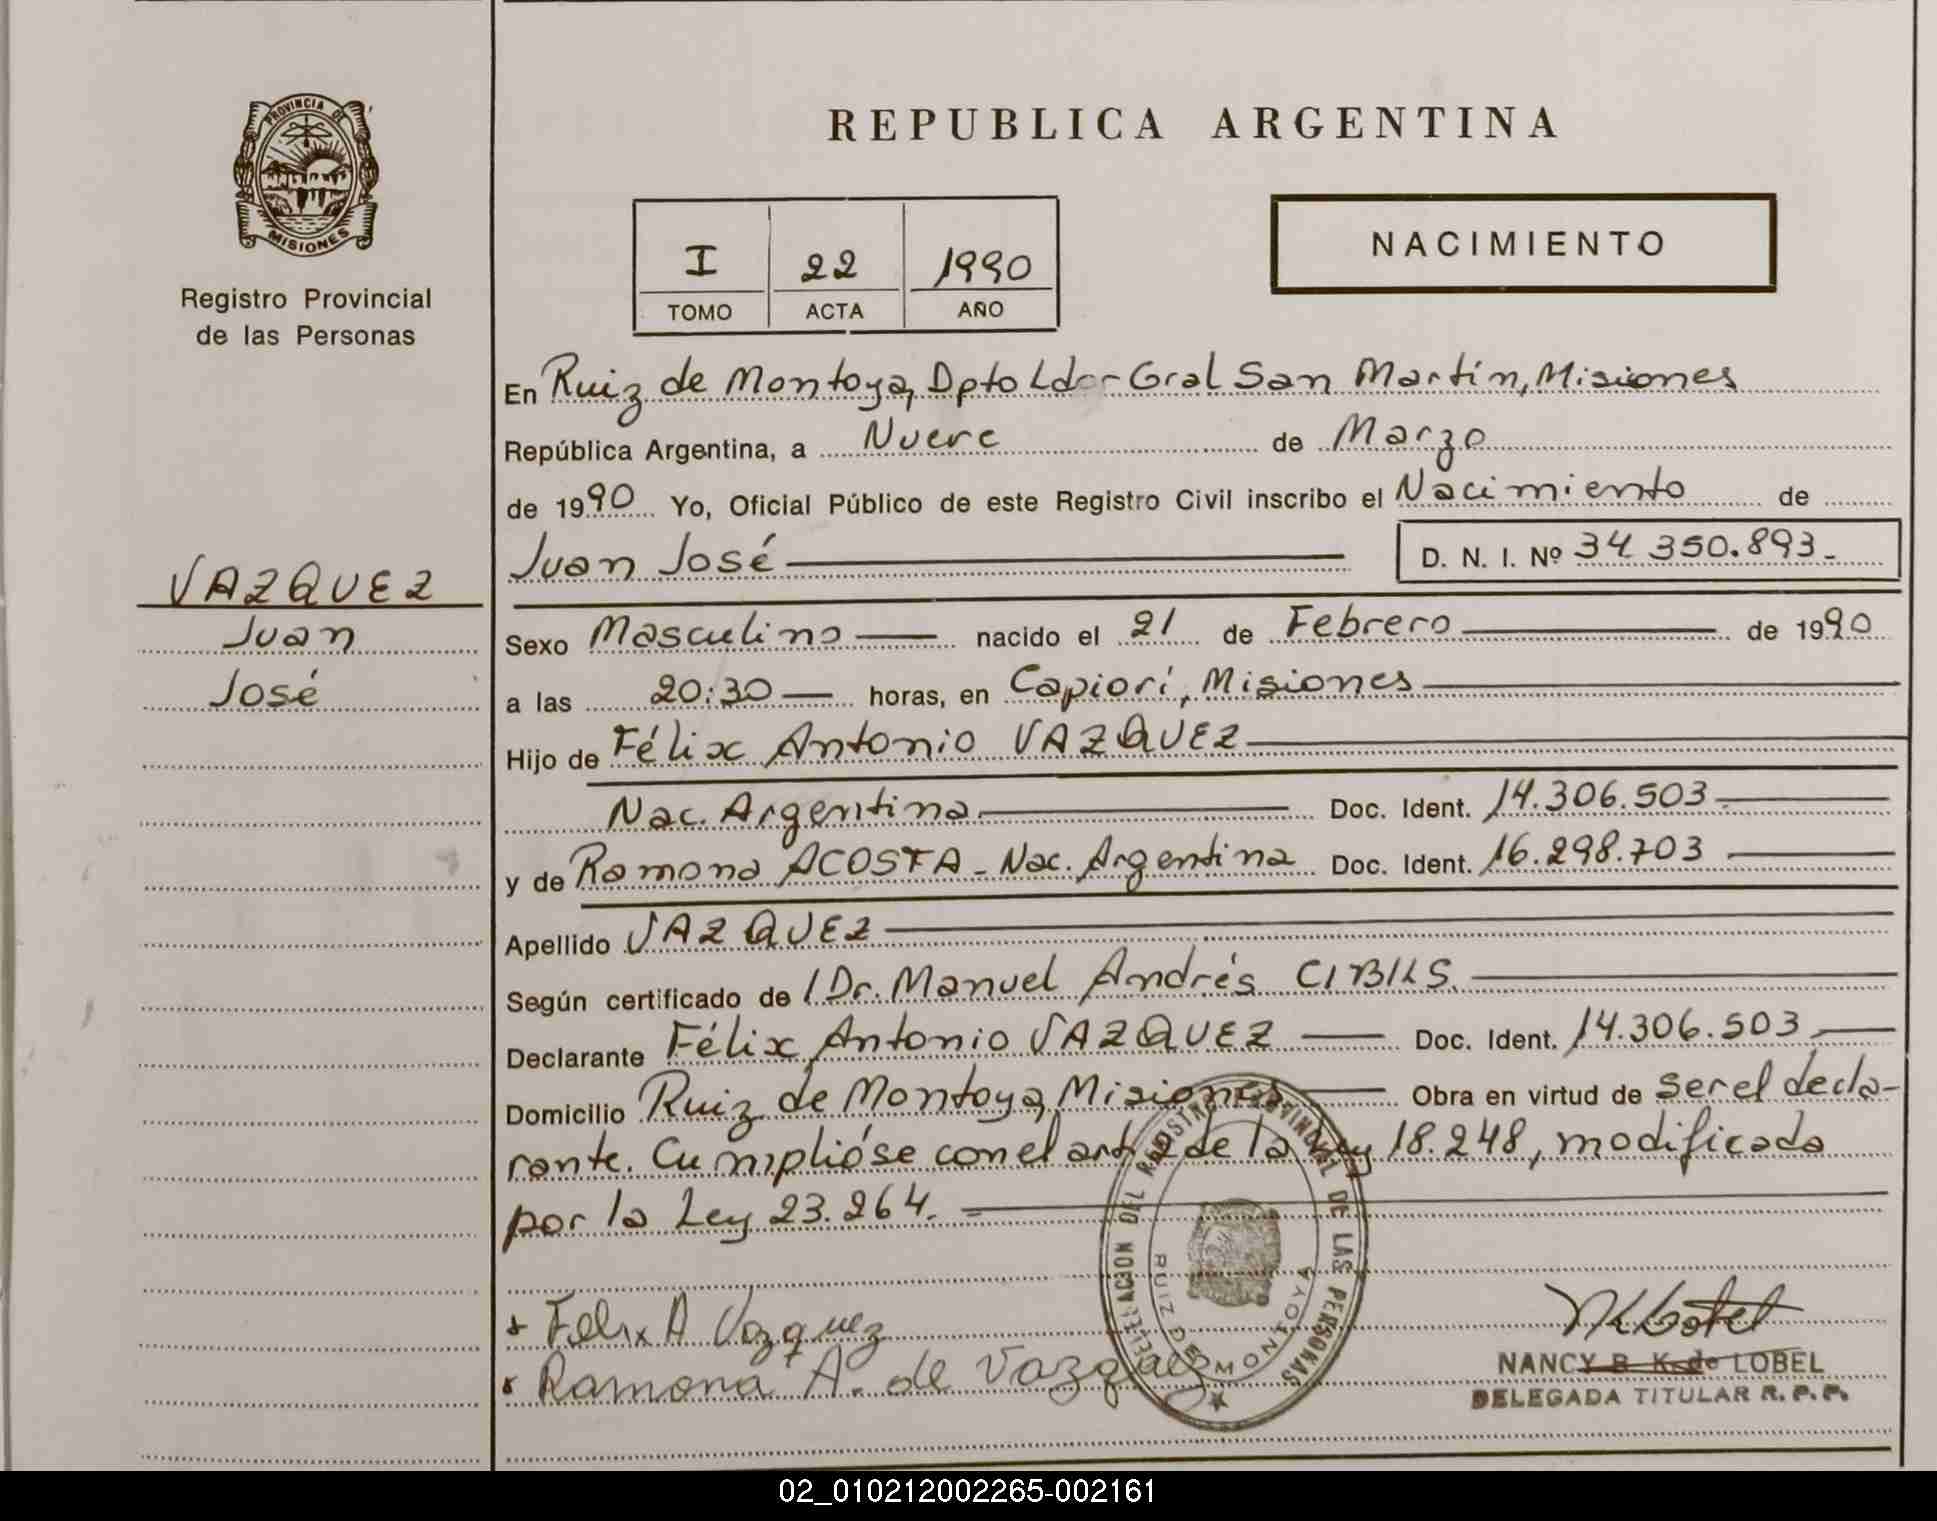 PROVINCIA DE
MISIONES
Registro Provincial
de las Personas
VAZQUEZ
Juan
José
REPUBLICA ARGENTINA
I 22 1990
TOMO ACTA AÑO
NACIMIENTO
En Ruiz de Montoya, Dpto Ldor Gral San Martín, Misiones
República Argentina, a Nueve de Marzo
de 1990 Yo, Oficial Público de este Registro Civil inscribo el Nacimiento de
Juan José D. N. I. Nº 34 350.893.-
Sexo Masculino nacido el 21 de Febrero de 1990
a las 20:30 horas, en Capiorí, Misiones
Hijo de Félix Antonio VAZQUEZ
Nac. Argentina Doc. Ident. 14.306.503
y de Ramona ACOSTA - Nac. Argentina Doc. Ident. 16.298.703
Apellido VAZQUEZ
Según certificado de / Dr. Manuel Andrés CIBILS
Declarante Félix Antonio VAZQUEZ Doc. Ident. 14.306.503
Domicilio Ruiz de Montoya, Misiones Obra en virtud de ser el decla-
rante. Cumplióse con el art 2 de la Ley 18.248, modificada
por la Ley 23.264.
DELEGACION DEL REGISTRO PROVINCIAL DE LAS PERSONAS
RUIZ DE MONTOYA
x Felix A Vazquez
x Ramona A. de Vazquez
NANCY B. K. de LOBEL
DELEGADA TITULAR R. P. P.
02_010212002265-002161